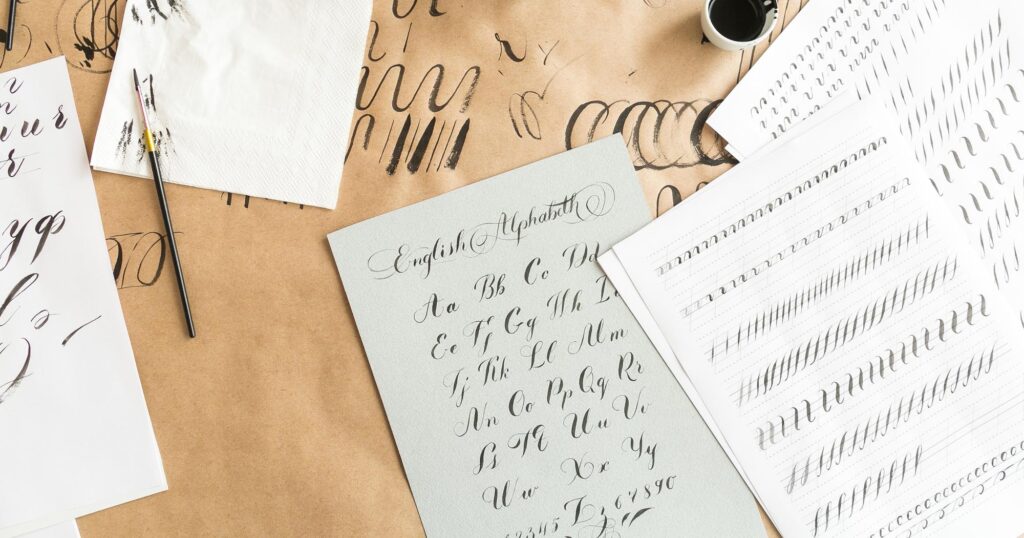 English Alphabeth
Aa Bb Cc Dd
Ee Ff Gg Hh I
Jj Kk Ll Mm
Nn Oo Pp Qq Rr
Ss Tt Uu Vv
Ww Xx Yy
2345 Zz 67890
уф